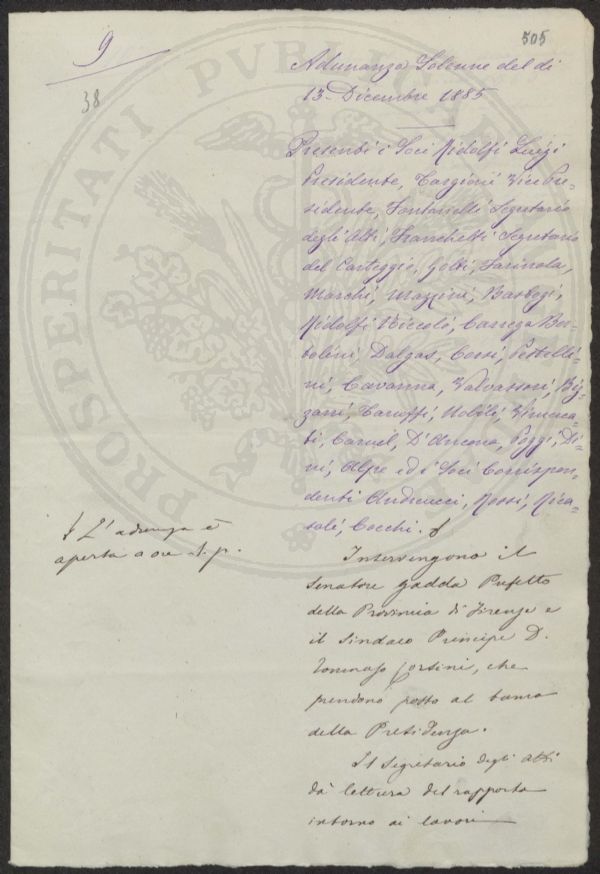 9
38
505
PROSPERITATI PVBLICAE
Adunanza Solenne del dì
13 Dicembre 1885
Presenti i Soci Ridolfi Luigi
Presidente, Targioni Vice Pre-
sidente, Fontanelli Segretario
degli Atti, Franchetti Segretario
del Carteggio, Gotti, Farinola,
Marchi, Mazzini, Barbogi,
Ridolfi Niccolò, Carrega Ber-
tolini, Dalgas, Cossi, Pestelli-
ni, Cavanna, Valvassori, Biz-
zarri, Taruffi, Nobili, Vimerca-
ti, Caruel, D'Ancona, Poggi, Di-
ni, Alpe ed i Soci Corrispon-
denti Andreucci, Rossi, Rica-
soli, Cocchi.
L'adunanza è
aperta a ore 1. p.
Intervengono il
Senatore Gadda Prefetto
della Provincia di Firenze e
il Sindaco Principe D.
Tommaso Corsini, che
prendono posto al banco
della Presidenza.
Il Segretario degli Atti
dà lettura del rapporto
intorno ai lavori